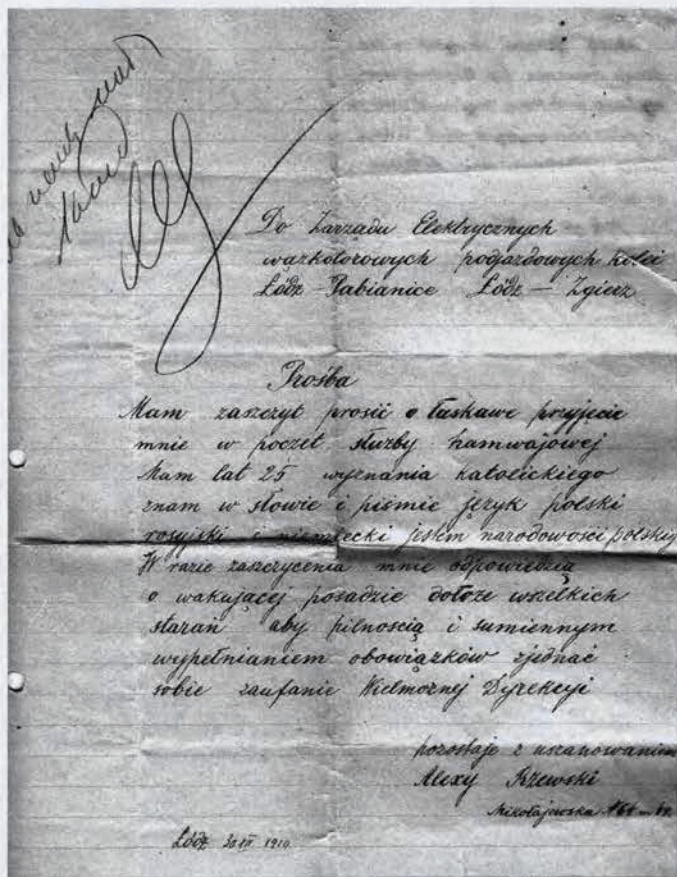 Do Zarządu Elektrycznych
wązkotorowych podjazdowych kolei
Łódź - Pabianice Łódź - Zgierz
Prośba
Mam zaszczyt prosić o łaskawe przyjęcie
mnie w poczet służby tramwajowej
Mam lat 25 wyznania katolickiego
znam w słowie i piśmie język polski
rosyjski i niemiecki jestem narodowości polskiej
W razie zaszczycenia mnie odpowiedzią
o wakującej posadzie dołożę wszelkich
starań aby pilnością i sumiennym
wypełnianiem obowiązków zjednać
sobie zaufanie Wielmożnej Dyrekcyi
pozostaję z uszanowaniem
Alexy Rżewski
Mikołajewska
Łódź 1910